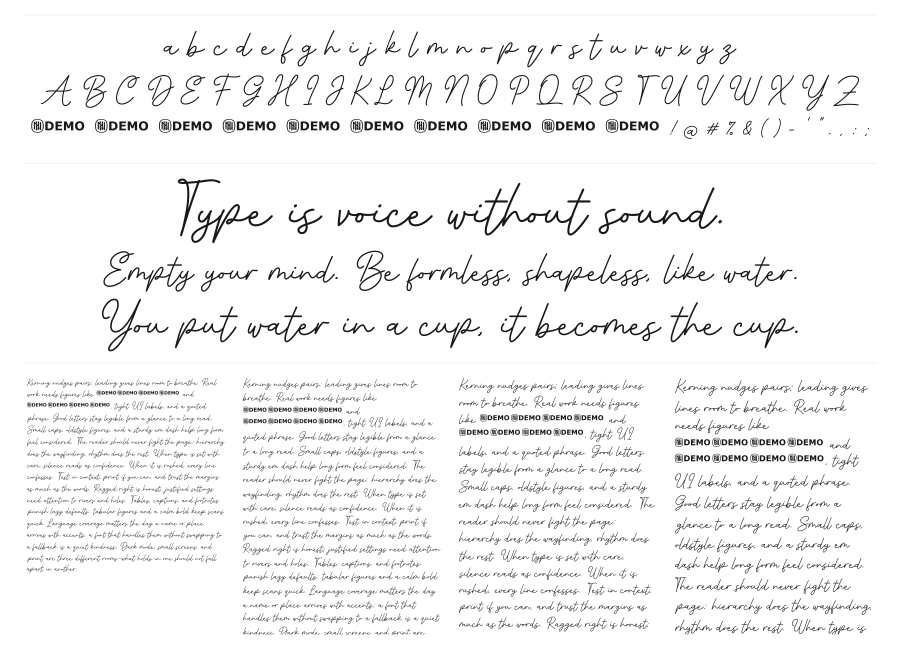 a b c d e f g h i j k l m n o p q r s t u v w x y z
A B C D E F G H I J K L M N O P Q R S T U V W X Y Z
DEMO DEMO DEMO DEMO DEMO DEMO DEMO DEMO DEMO DEMO / @ # % & ( ) - ' " . , : ;
Type is voice without sound.
Empty your mind. Be formless, shapeless, like water.
You put water in a cup, it becomes the cup.
Kerning nudges pairs; leading gives lines room to breathe. Real
work needs figures like DEMO DEMO DEMO DEMO and
DEMO DEMO DEMO DEMO , tight UI labels, and a quoted
phrase. Good letters stay legible from a glance to a long read.
Small caps, oldstyle figures, and a sturdy em dash help long form
feel considered. The reader should never fight the page; hierarchy
does the wayfinding, rhythm does the rest. When type is set with
care, silence reads as confidence. When it is rushed, every line
confesses. Test in context, print if you can, and trust the margins
as much as the words. Ragged right is honest; justified settings
need attention to rivers and holes. Tables, captions, and footnotes
punish lazy defaults; tabular figures and a calm bold keep scans
quick. Language coverage matters the day a name or place
arrives with accents; a font that handles them without swapping to
a fallback is a quiet kindness. Dark mode, small screens, and
print are three different rooms—what holds in one should not fall
apart in another.
Kerning nudges pairs; leading gives lines room to
breathe. Real work needs figures like
DEMO DEMO DEMO DEMO and
DEMO DEMO DEMO DEMO , tight UI labels, and a
quoted phrase. Good letters stay legible from a glance
to a long read. Small caps, oldstyle figures, and a
sturdy em dash help long form feel considered. The
reader should never fight the page; hierarchy does the
wayfinding, rhythm does the rest. When type is set
with care, silence reads as confidence. When it is
rushed, every line confesses. Test in context, print if
you can, and trust the margins as much as the words.
Ragged right is honest; justified settings need attention
to rivers and holes. Tables, captions, and footnotes
punish lazy defaults; tabular figures and a calm bold
keep scans quick. Language coverage matters the day
a name or place arrives with accents; a font that
handles them without swapping to a fallback is a quiet
kindness. Dark mode, small screens, and print are
Kerning nudges pairs; leading gives lines
room to breathe. Real work needs figures
like DEMO DEMO DEMO DEMO and
DEMO DEMO DEMO DEMO , tight UI
labels, and a quoted phrase. Good letters
stay legible from a glance to a long read.
Small caps, oldstyle figures, and a sturdy
em dash help long form feel considered. The
reader should never fight the page;
hierarchy does the wayfinding, rhythm does
the rest. When type is set with care,
silence reads as confidence. When it is
rushed, every line confesses. Test in context,
print if you can, and trust the margins as
much as the words. Ragged right is honest;
Kerning nudges pairs; leading gives
lines room to breathe. Real work
needs figures like
DEMO DEMO DEMO DEMO and
DEMO DEMO DEMO DEMO , tight
UI labels, and a quoted phrase.
Good letters stay legible from a
glance to a long read. Small caps,
oldstyle figures, and a sturdy em
dash help long form feel considered.
The reader should never fight the
page; hierarchy does the wayfinding,
rhythm does the rest. When type is